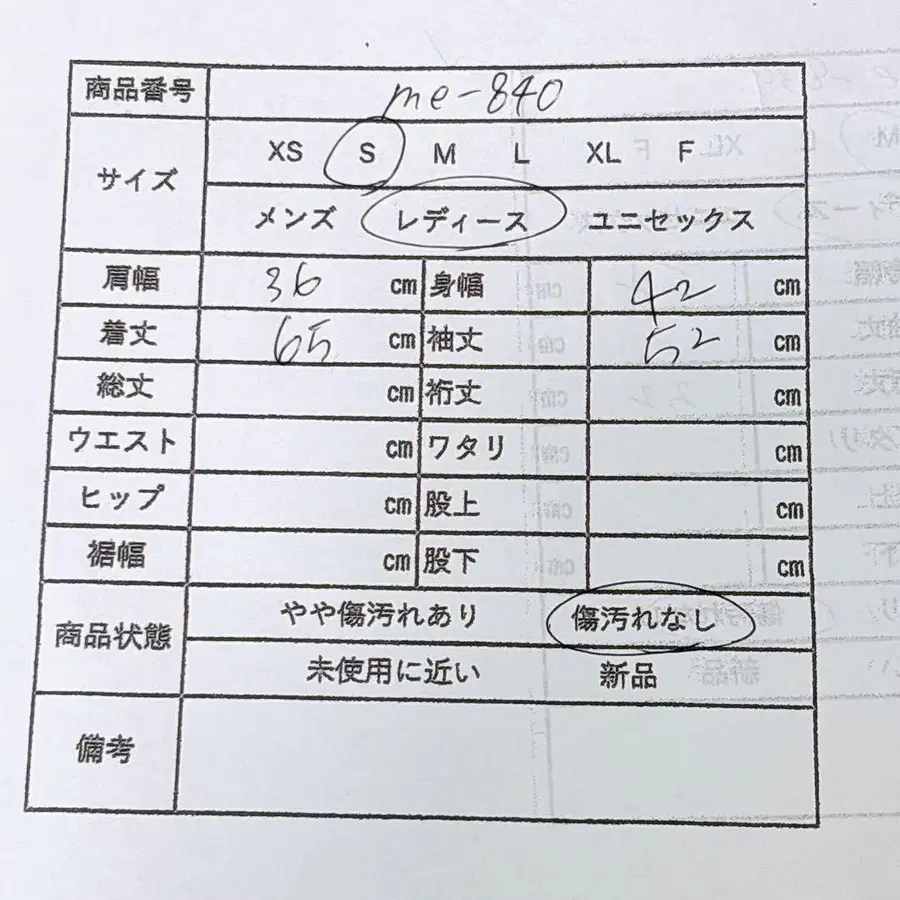 商品番号 me-840
サイズ XS S M L XL F
メンズ レディース ユニセックス
肩幅 36 cm 身幅 42 cm
着丈 65 cm 袖丈 52 cm
総丈 cm 裄丈 cm
ウエスト cm ワタリ cm
ヒップ cm 股上 cm
裾幅 cm 股下 cm
商品状態 やや傷汚れあり 傷汚れなし
未使用に近い 新品
備考